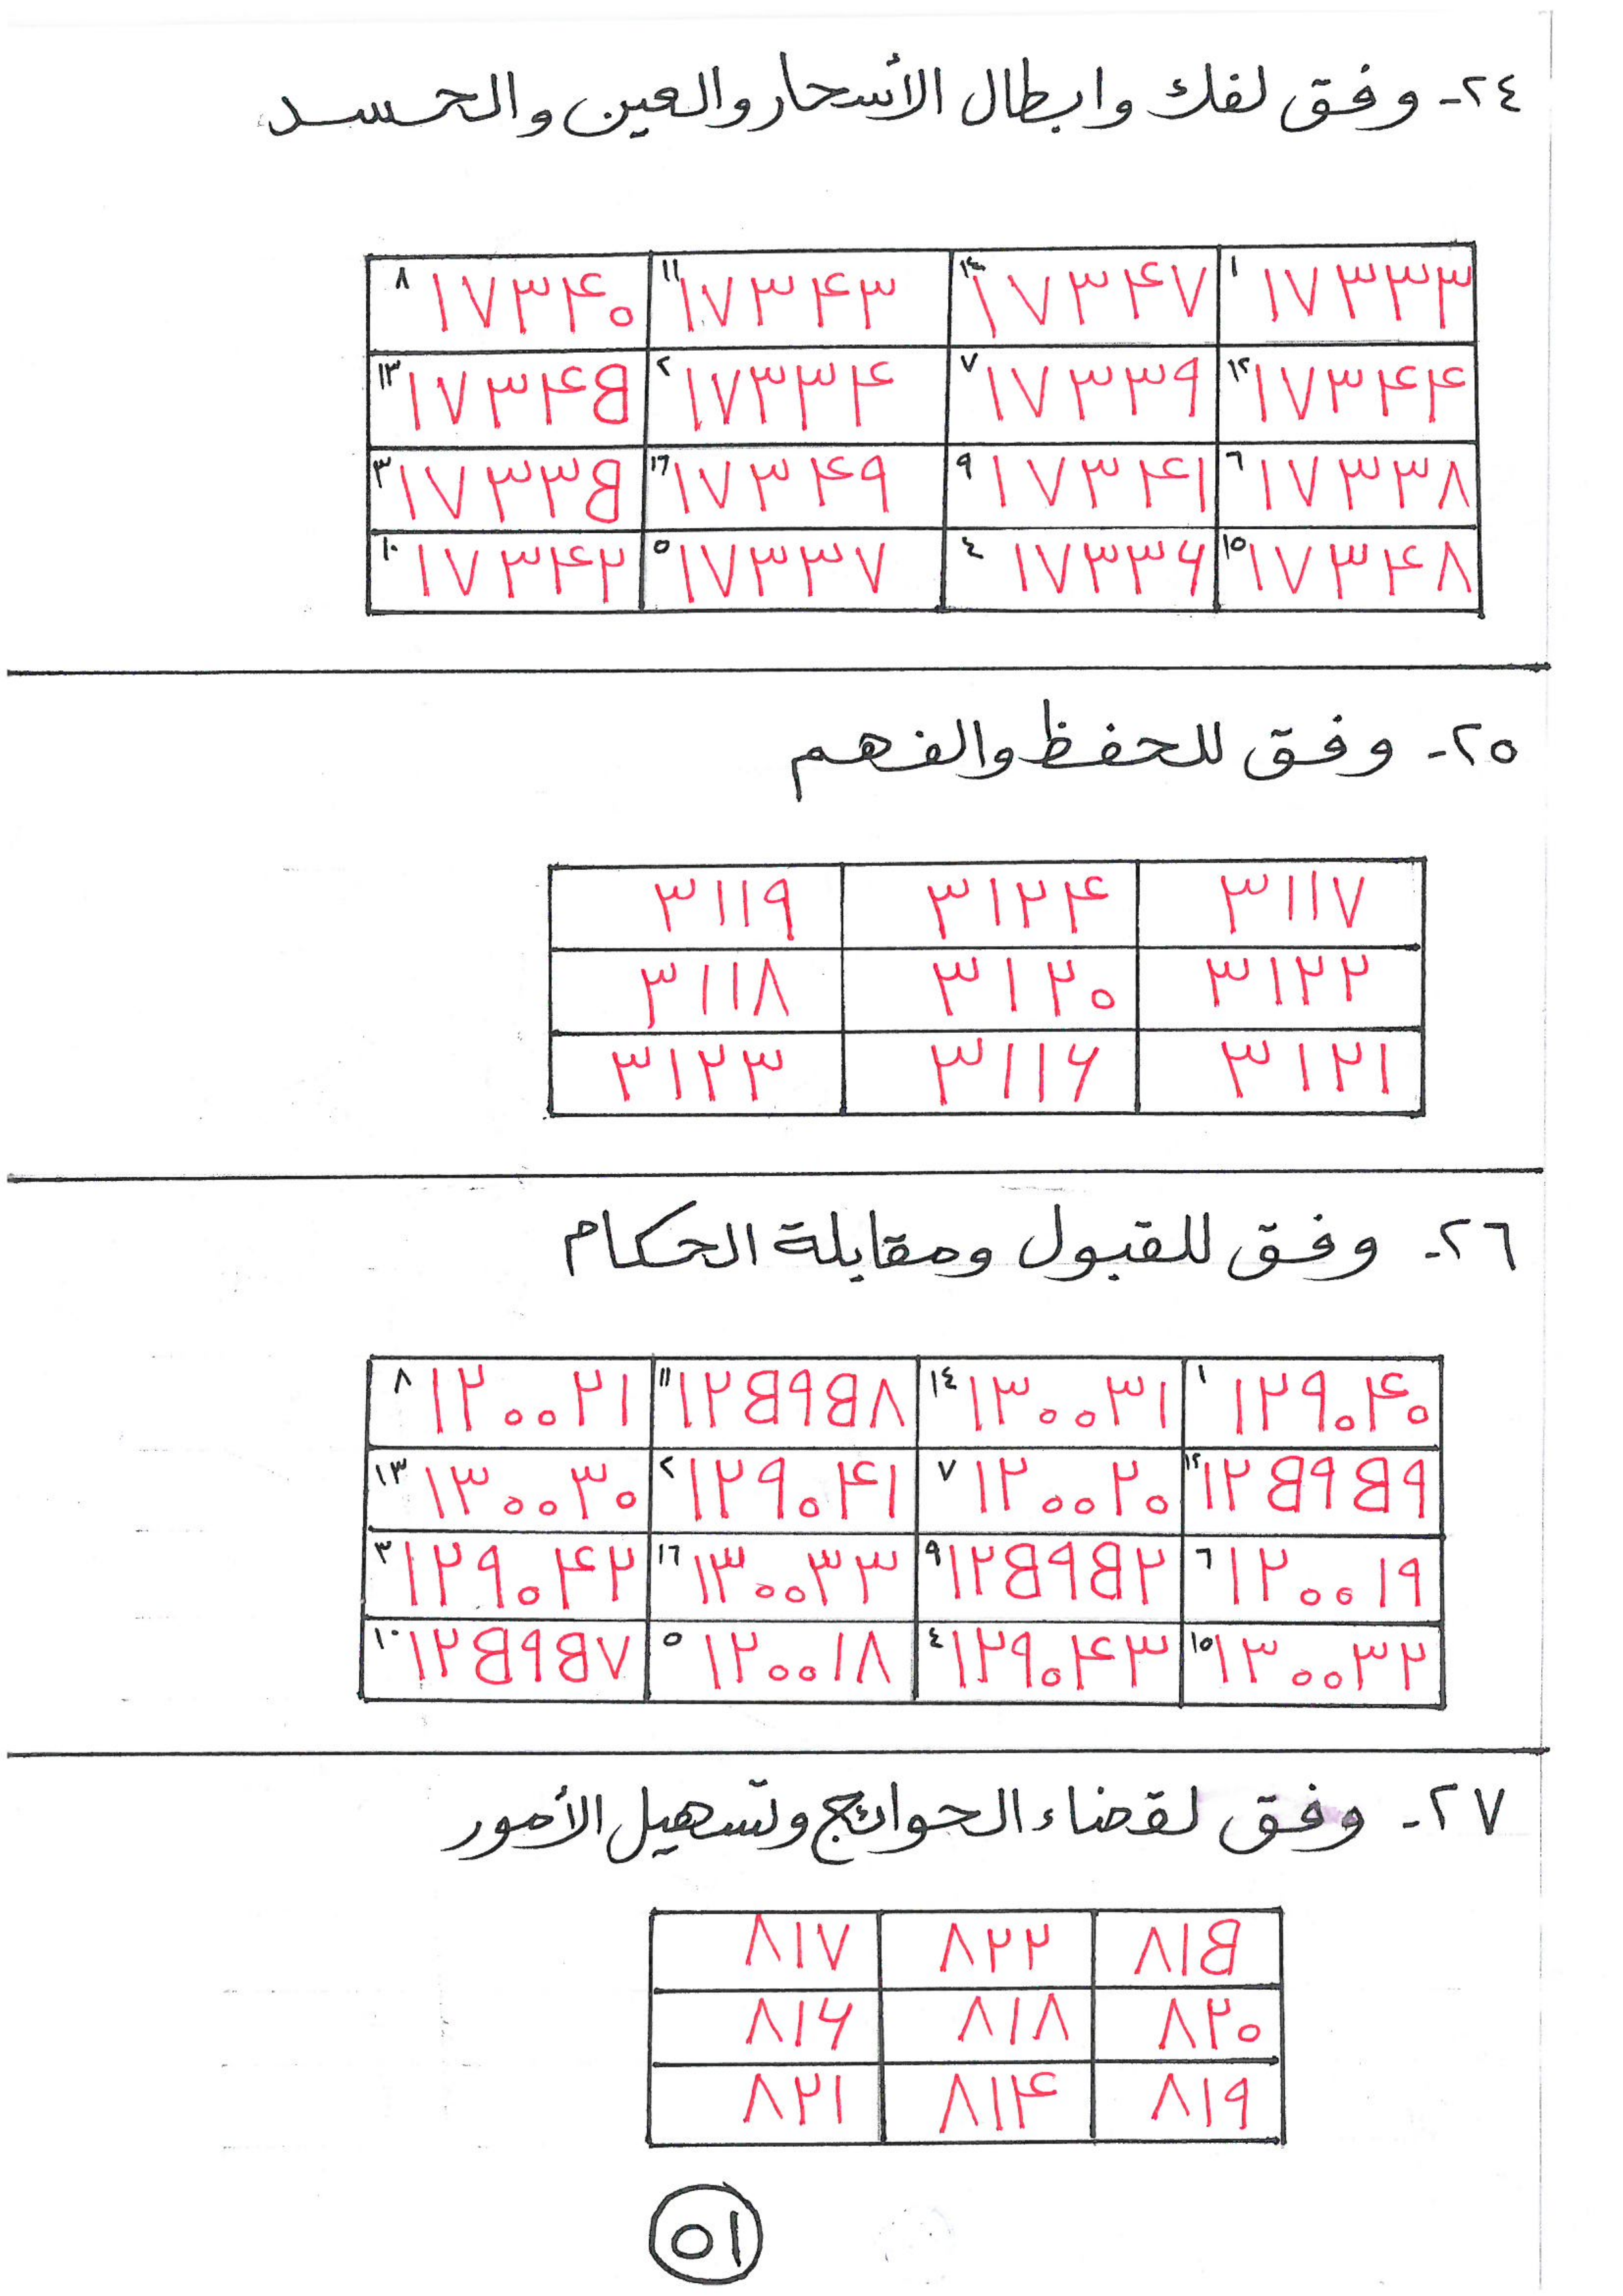 ٢٤- وفق لفك وابطال الأسحار والعين والحسد
١ ١٧٣٣٣ ١٤ ١٧٣۴٧ ١١ ١٧٣۴٣ ٨ ١٧٣۴٠
١٢ ١٧٣۴۴ ٧ ١٧٣٣٩ ٢ ١٧٣٣۴ ١٣ ١٧٣۴۵
٦ ١٧٣٣٨ ٩ ١٧٣۴١ ١٦ ١٧٣۴٩ ٣ ١٧٣٣۵
١٥ ١٧٣۴٨ ٤ ١٧٣٣۶ ٥ ١٧٣٣٧ ١٠ ١٧٣۴٢
٢٥- وفق للحفظ والفهم
٣١١٧ ٣١٢۴ ٣١١٩
٣١٢٢ ٣١٢٠ ٣١١٨
٣١٢١ ٣١١۶ ٣١٢٣
٢٦- وفق للقبول ومقابلة الحكام
١ ١٢٩٠۴٠ ١٤ ١٣٠٠٣١ ١١ ١٢۵٩۵٨ ٨ ١٢٠٠٢١
١٢ ١٢۵٩۵٩ ٧ ١٢٠٠٢٠ ٢ ١٢٩٠۴١ ١٣ ١٣٠٠٣٠
٦ ١٢٠٠١٩ ٩ ١٢۵٩۵٢ ١٦ ١٣٠٠٣٣ ٣ ١٢٩٠۴٢
١٥ ١٣٠٠٣٢ ٤ ١٢٩٠۴٣ ٥ ١٢٠٠١٨ ١٠ ١٢۵٩۵٧
٢٧- وفق لقضاء الحوائج وتسهيل الأمور
٨١۵ ٨٢٢ ٨١٧
٨٢٠ ٨١٨ ٨١۶
٨١٩ ٨١۴ ٨٢١
٥١